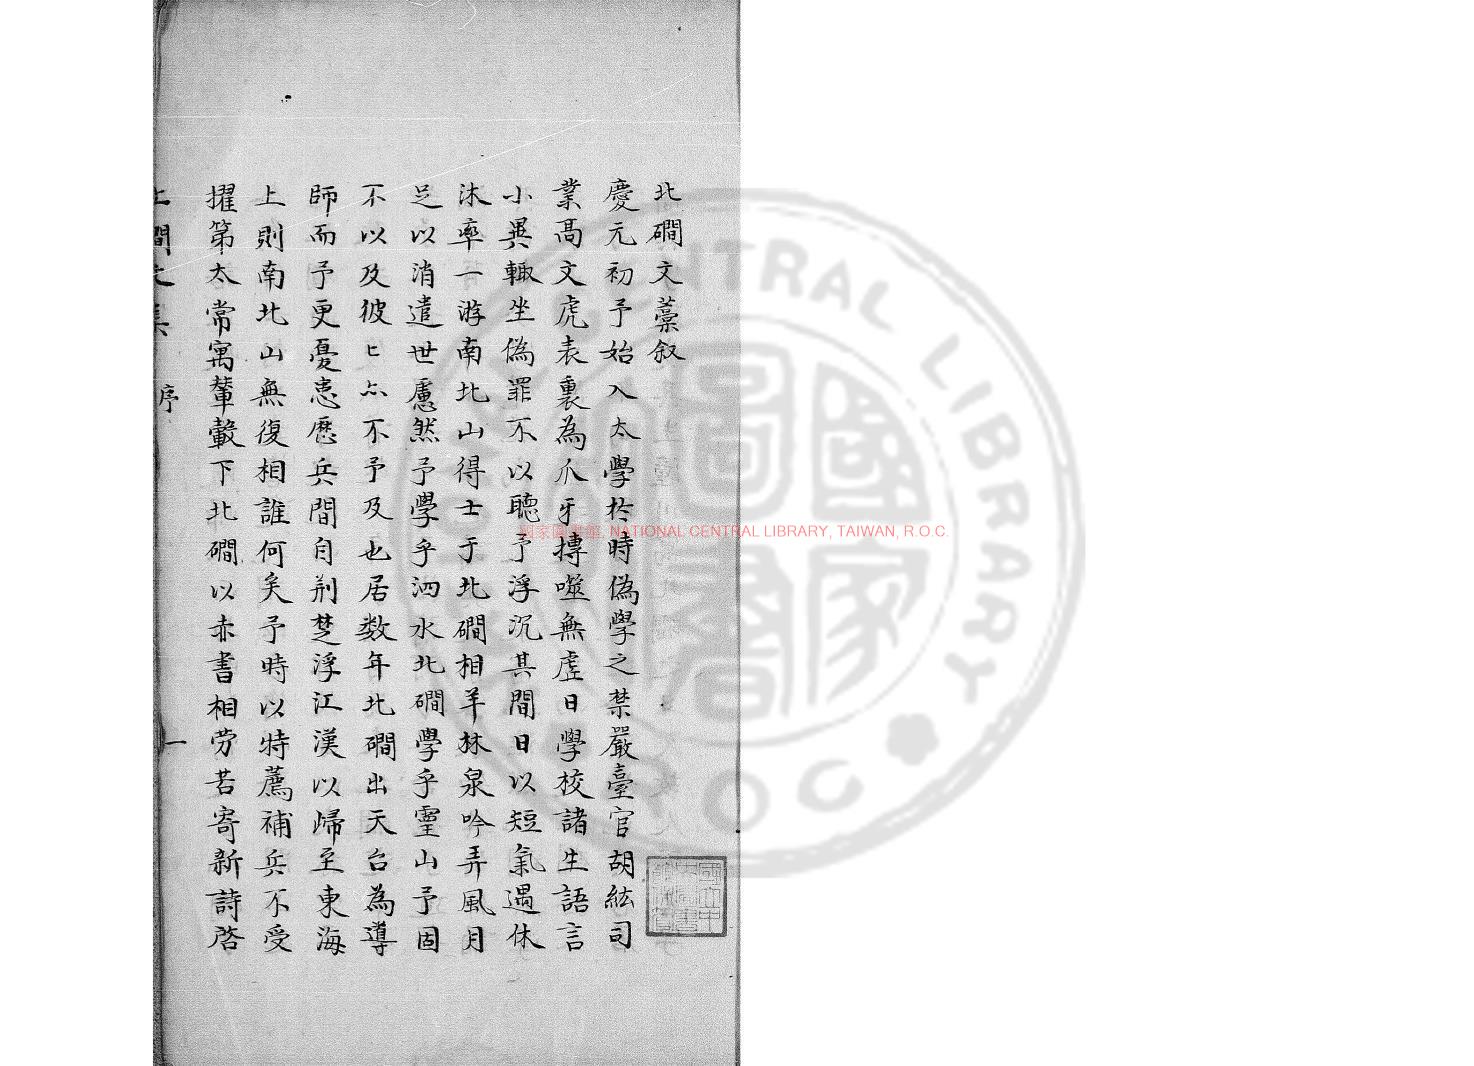 北磵文藁叙
慶元初予始入太學於時偽學之禁嚴臺官胡紘司
業高文虎表裏為爪牙摶噬無虛日學校諸生語言
小異輙坐偽罪不以聽予浮沉其間日以短氣遇休
沐率一游南北山得士于北磵相羊林泉吟弄風月
足以消遣世慮然予學乎泗水北磵學乎靈山予固
不以及彼匕亦不予及也居数年北磵出天台為導
師而予更憂患歷兵間自荊楚浮江漢以歸至東海
上則南北山無復相誰何矣予時以特薦補兵不受
擢第太常寓輦轂下北磵以赤書相劳苦寄新詩啓
序
一
國家圖書館, NATIONAL CENTRAL LIBRARY, TAIWAN, R.O.C.